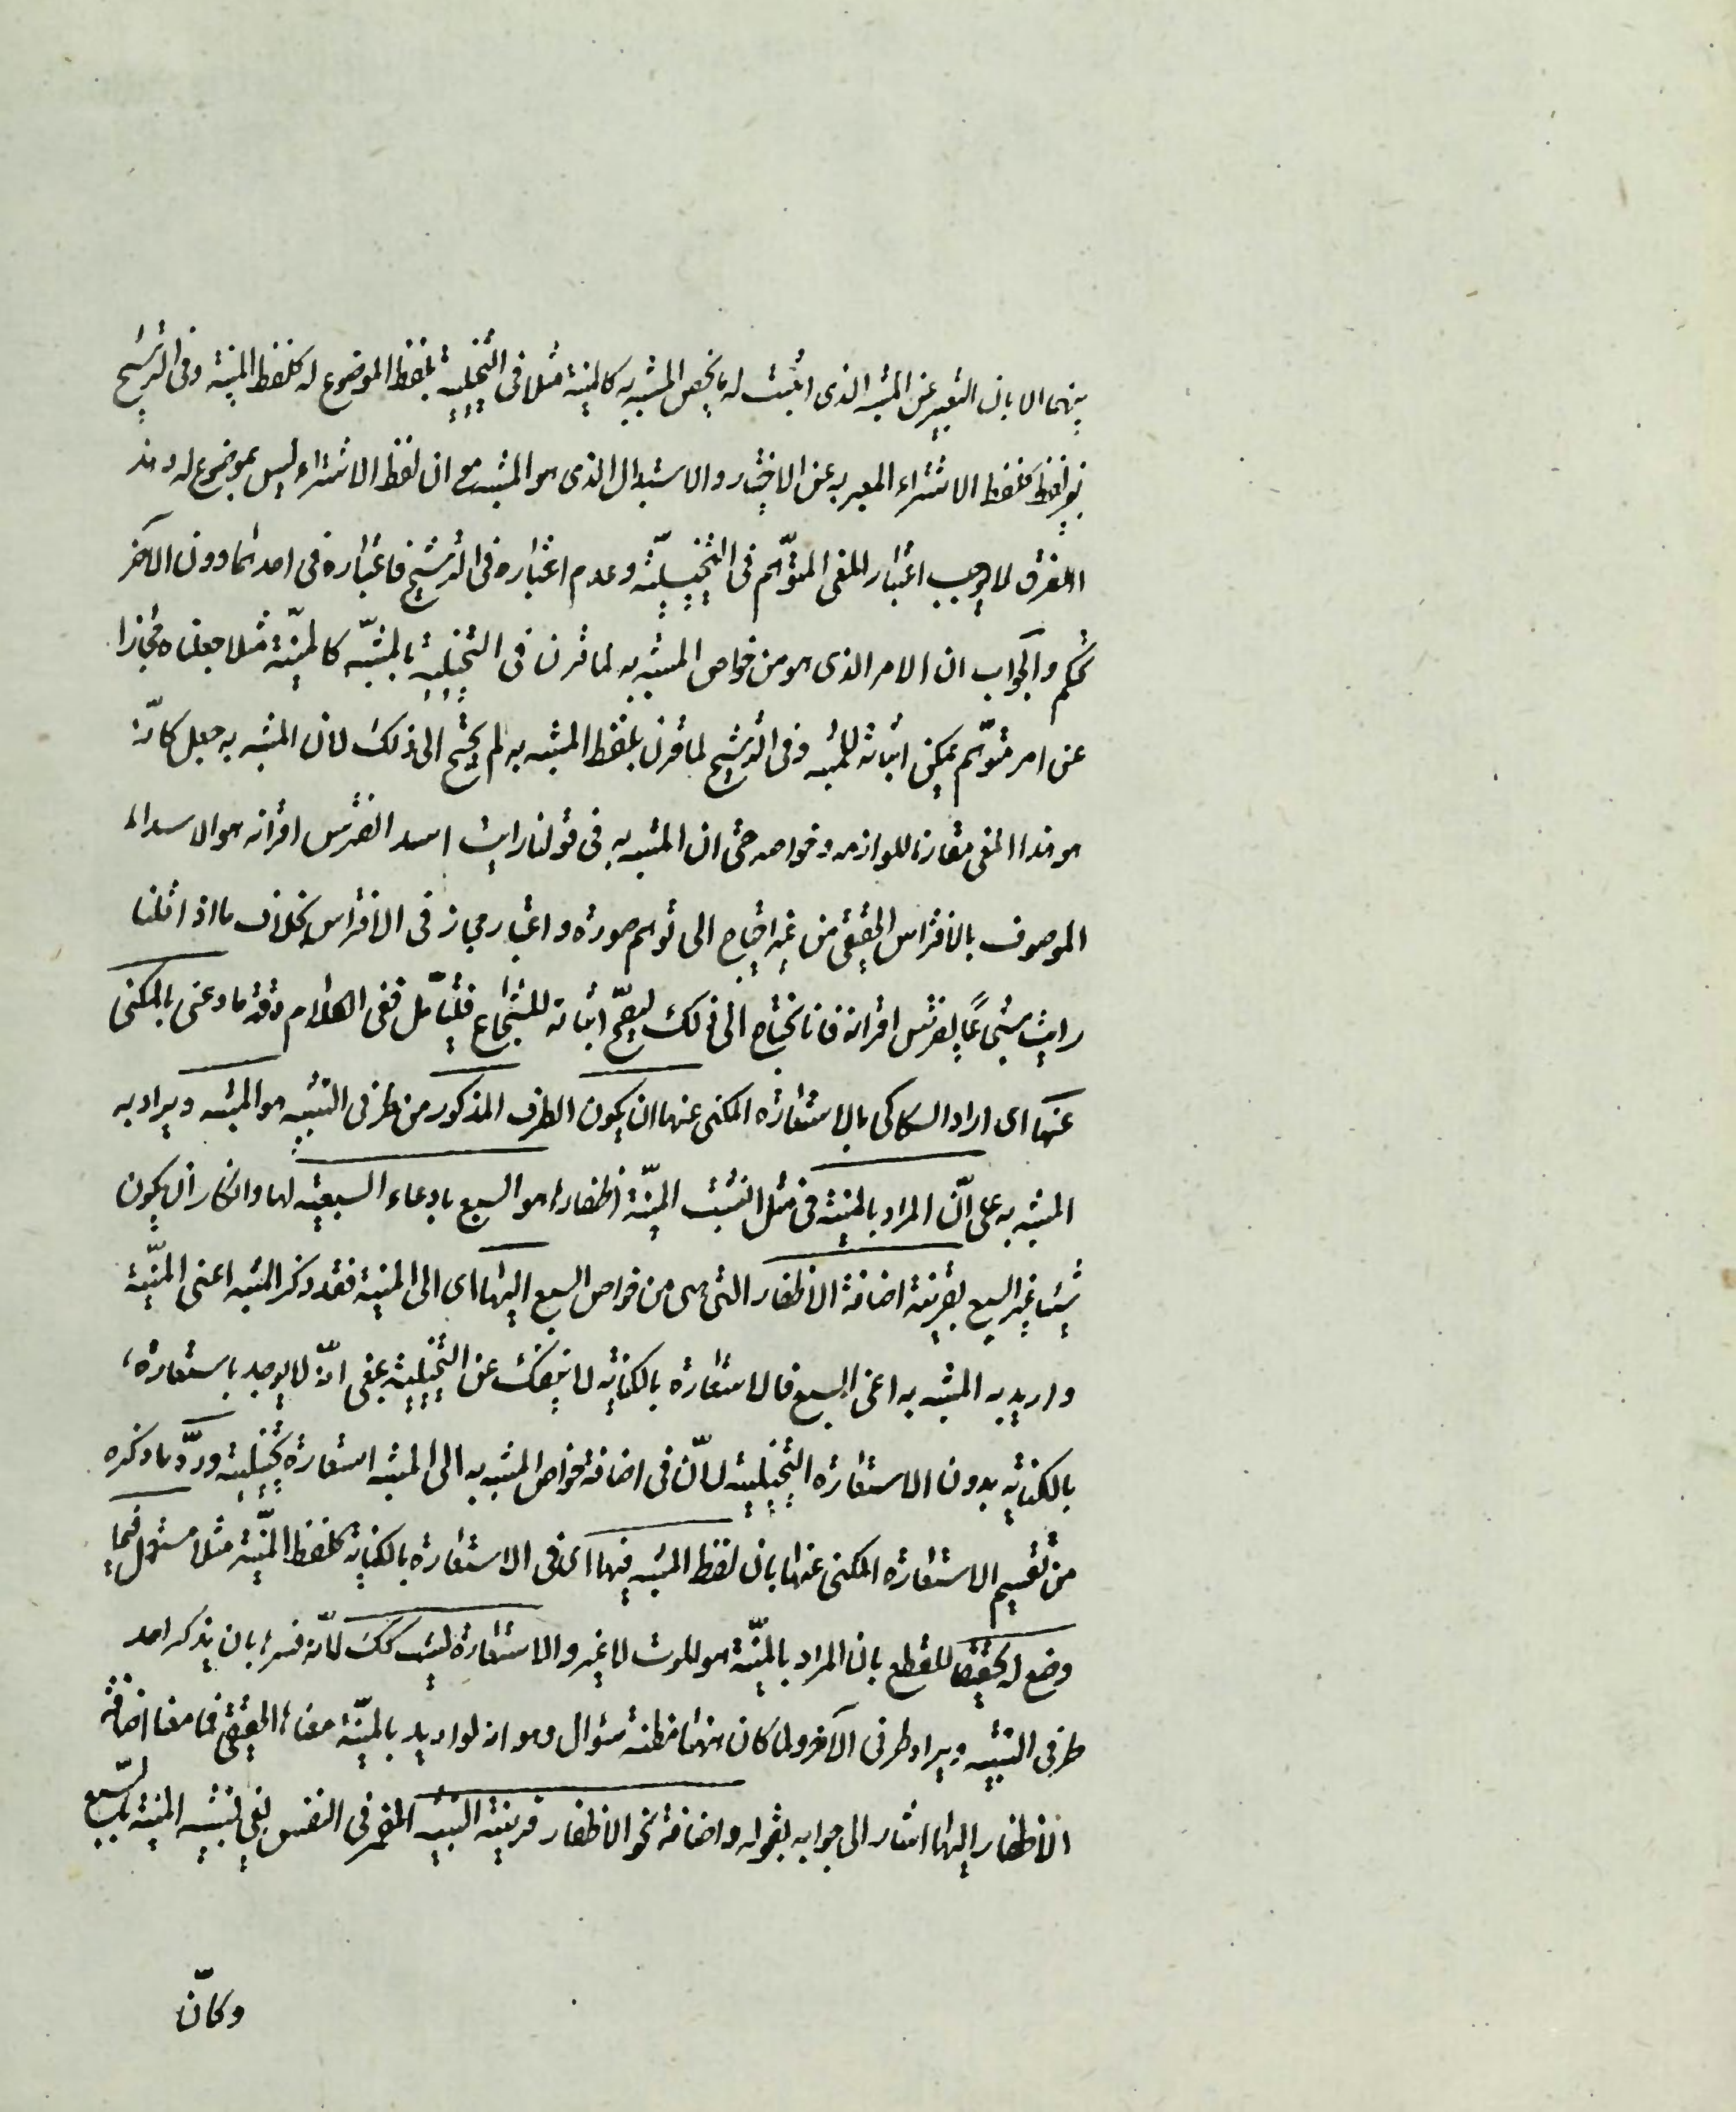 بينهما الا بان التعبير عن المشبه الذى اثبت له ما يخص المشبه به كالمنية مثلا فى التخييلية بلفظ الموضوع له كلفظ المنية وفى الترشيح
بغير لفظه كلفظ الاشتراء المعبر به عن الاختيار والاستبدال الذى هو المشبه مع ان لفظ الاشتراء ليس بموضوع له وهذا
الفرق لا يوجب اعتبار المعنى المتوهّم فى التخييليّة وعدم اعتباره فى الترشيح فاعتباره فى احدهما دون الآخر
تحكم والجواب ان الامر الذى هو من خواص المشبه به لما قرن فى التخييلية بالمشبّه كالمنيّة مثلا جعلناه مجازا
عن امر متوّهم يمكن اثباته للمشبه وفى الترشيح لما قرن بلفظ المشبه به لم يحتج الى ذلك لان المشبه به جعل كانّه
هو هذا المعنى مقارنا للوازمه وخواصه حتى ان المشبه به فى قولنا رايت اسدا يفترس اقرانه هو الاسد
الموصوف بالافتراس الحقيقى من غير احتياج الى توهم صورة واعتبار مجاز فى الافتراس بخلاف ما اذا قلنا
رايت شجاعًا يفترس اقرانه فانا نحتاج الى ذلك ليصحّ اثباته للشجاع فليتأمّل ففى الكلام دقة ما وعنى بالمكنى
عنها اى اراد السكاكى بالاستعارة المكنى عنها ان يكون الطرف المذكور من طرفى التشبيه هو المشبه ويراد به
المشبه به على انّ المراد بالمنية فى مثل انشبت المنيّة اظفارها هو السبع بادعاء السبعية لها وانكار ان يكون
شيئا غير السبع بقرينة اضافة الاظفار التى هى من خواص السبع اليها اى الى المنية فقد ذكر المشبه اعنى المنيّة
واريد به المشبه به اعنى السبع فالاستعارة بالكناية لا ينفك عن التخييلية بمعنى انّه لا يوجد باستعارة
بالكناية بدون الاستعارة التخييلية لانّ فى اضافة خواص المشبه به الى المشبه استعارة تخييلية وردّ ما ذكره
من تقسيم الاستعارة المكنى عنها بان لفظ المشبه فيها اى فى الاستعارة بالكناية كلفظ المنّية مثلا مستعمل فيما
وضع له تحقيقا للقطع بان المراد بالمنيّة هو الموت لا غير والاستعارة ليست كك لانّه فسرها بان يذكر احد
طرفى التشبيه ويراد طرف الآخر ولما كان ههنا مظنة سؤال وهو انه لو اريد بالمنيّة معناها الحقيقى فما معنا اضافة
الاظفار اليها اشار الى جوابه بقوله واضافة نحو الاظفار قرينة التشبيه المضمر فى النفس يعنى تشبيه المنية بالسّبع
وكانّ